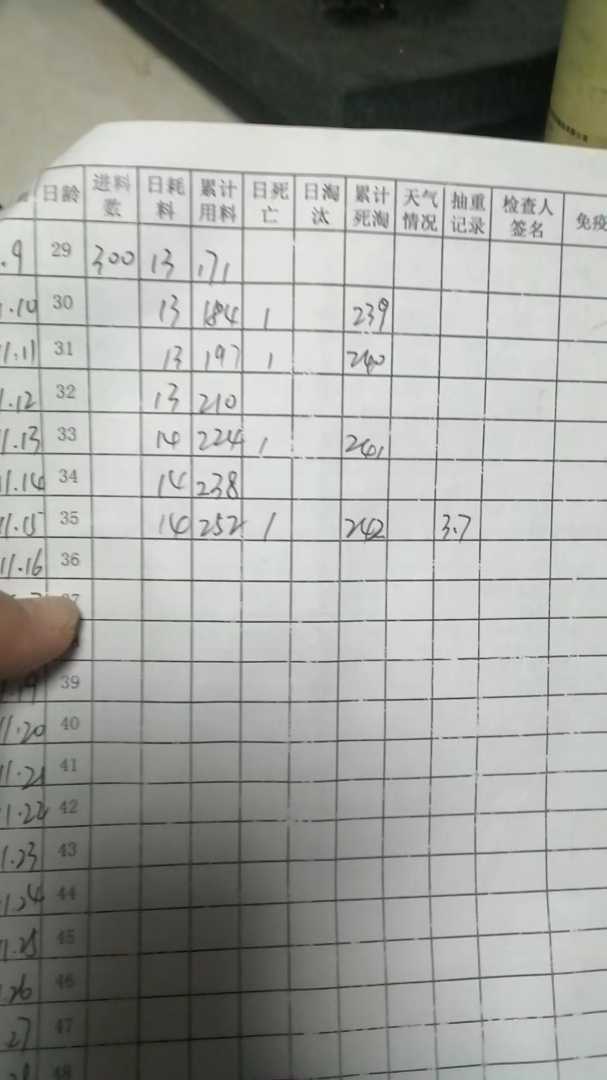 日龄 进料数 日耗料 累计用料 日死亡 日淘汰 累计死淘 天气情况 抽重记录 检查人签名 免疫
.9 29 300 13 171
1.10 30 13 184 1 239
11.11 31 13 197 1 240
1.12 32 13 210
11.13 33 14 224 1 241
11.14 34 14 238
11.15 35 14 252 1 242 3.7
11.16 36
37
.19 39
11.20 40
11.21 41
1.22 42
1.23 43
1.24 44
11.25 45
.26 46
.27 47
48